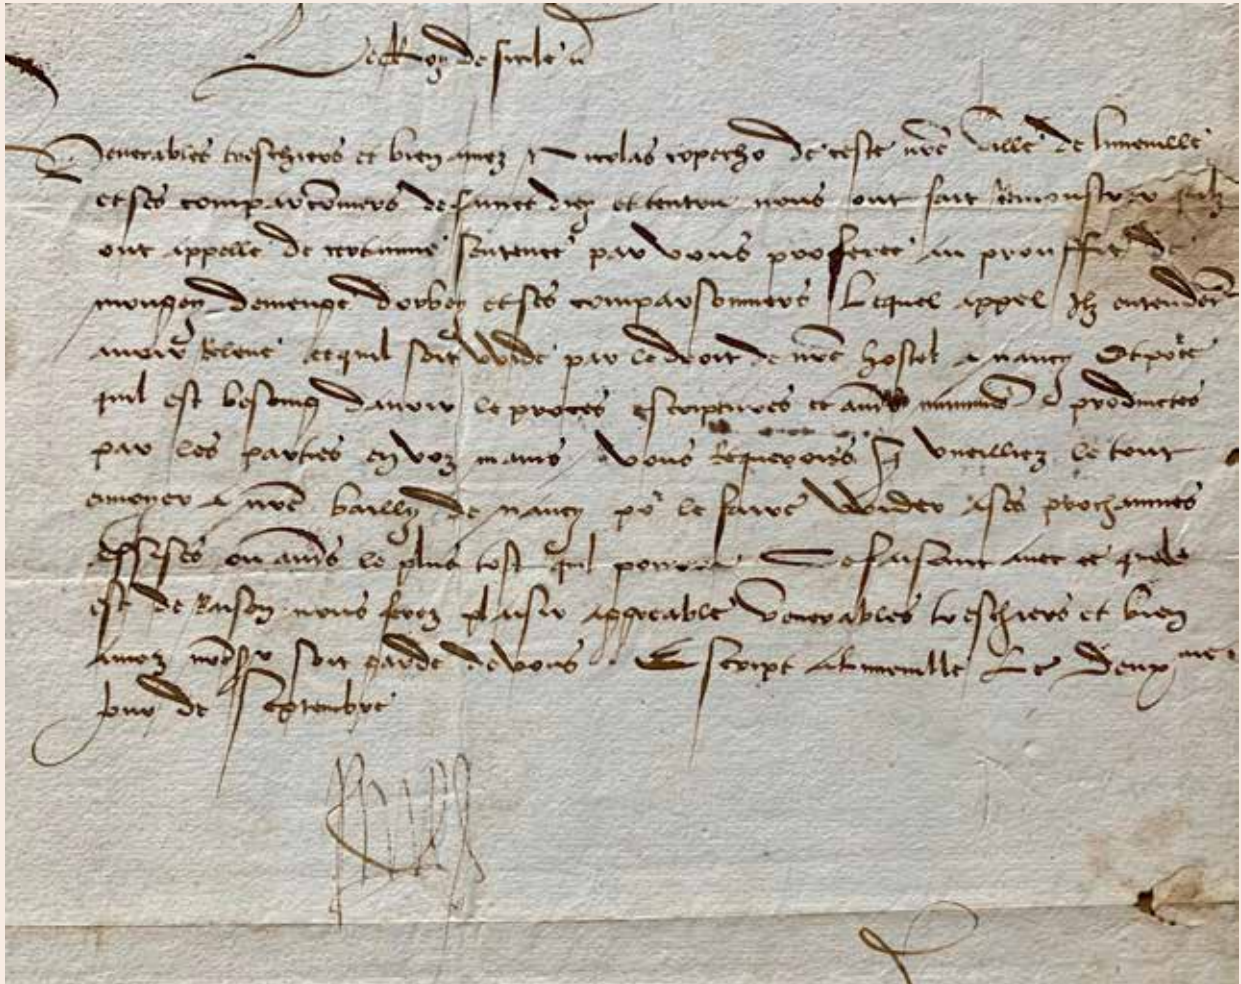 Le Roy de sicile
Venerables treschiers et bien amez Nicolas de ceste nre ville de luneville
et ses comparconniers de sainct diey et nous ont fait remonstrer quilz
ont appelle de certainne sentence par vous proferee au prouffit de
mongeon demenge et ses comparsonniers Lequel appel Ilz entendent
avoir Releve et quil soit wide par le droit de nre hostel a nancy Et pource
quil est besoing davoir le proces escriptures et productes
par les parties en voz mains vous Requerons vueilliez le tout
envoyer a nre bailly de nancy po le faire wuider a ses prochainnes
assises ou le plus tost quil pourra Ce faisant avec ce
est de Raison nous ferez plaisir aggreable Venerables treschiers et bien
amez nre sr soit garde de vous Escript a luneville Le deuxme
jour de Septembre